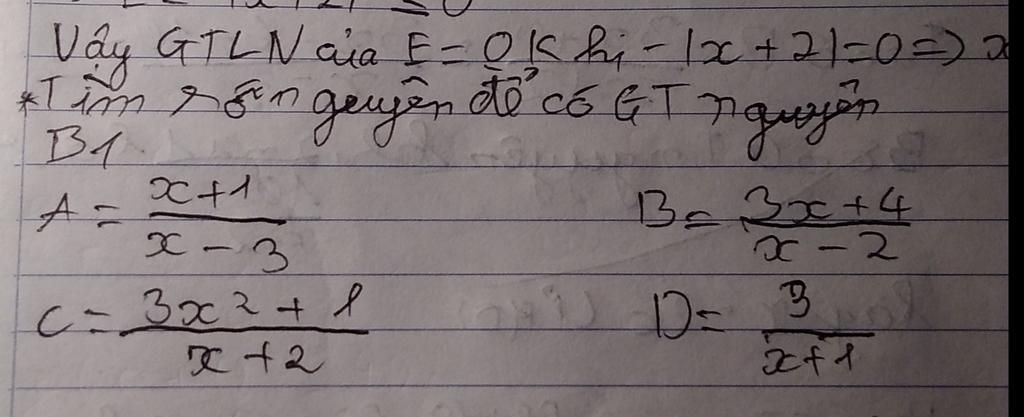 Vậy GTLN của E = 0 Khi - |x + 2| = 0 => x
*Tìm số nguyên để có GT nguyên
B1
A = x+1 / x - 3 B = 3x + 4 / x - 2
C = 3x2 + 1 / x + 2 D = 3 / x+1